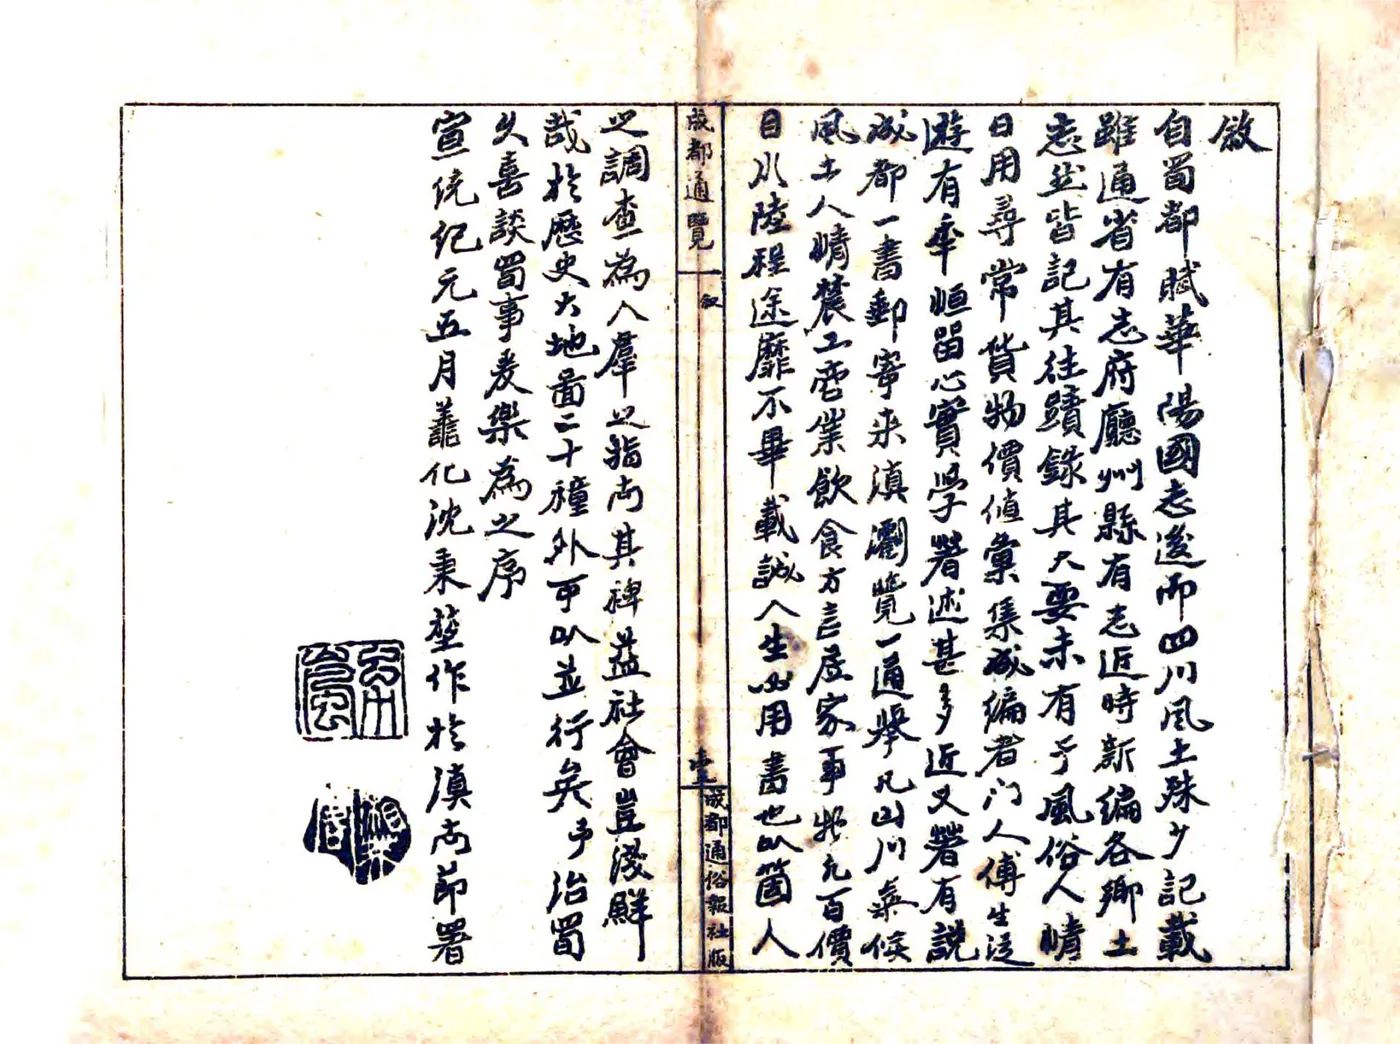 敘
自蜀都賦華陽國志後而四川風土殊少記載
雖通省有志府廳州縣有志近時新編各鄉土
志然皆記其往蹟錄其大要未有於風俗人情
日用尋常貨物價值彙集成編者門人傅生從
遊有年恒留心實學著述甚多近又著有說
成都一書郵寄來滇瀏覽一通舉凡山川氣候
風土人情農工商業飲食方言居家事物凡百價
目水陸程途靡不畢載誠人生必用書也以箇人
之調查為人羣之指南其裨益社會豈淺鮮
哉於歷史大地圖二十種外可以並行矣予治蜀
久喜談蜀事爰樂為之序
宣統紀元五月 化沈秉堃作於滇南節署
成都通覽
敘
壹
成都通俗報社版